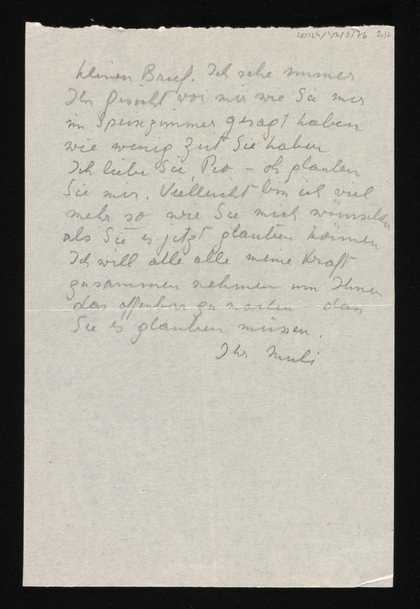 kleinen Brief. Ich sehe immer
Ihr Gesicht vor mir wie Sie mir
im Speisezimmer gesagt haben
wie wenig Zeit Sie haben
Ich liebe Sie, – oh glauben
Sie mir. Vielleicht bin ich viel
mehr so wie Sie mich wünschen
als Sie es jetzt glauben können
Ich will alle alle meine Kraft
zusammen nehmen um Ihnen
das offenbar zu machen dass
Sie es glauben müssen.
Ihr